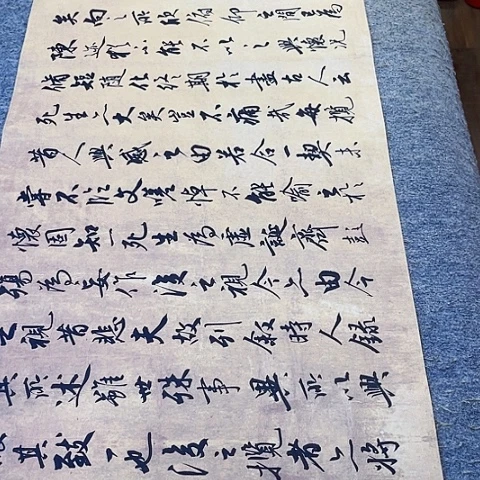 矣向之所欣俯仰之間已為
陳迹猶不能不以之興懷況
脩短隨化終期於盡古人云
死生亦大矣豈不痛哉每攬
昔人興感之由若合一契未
嘗不臨文嗟悼不能喻之於
懷固知一死生為虛誕齊彭
殤為妄作後之視今亦由今
之視昔悲夫故列敘時人錄
其所述雖世殊事異所以興
其致一也後之攬者亦將